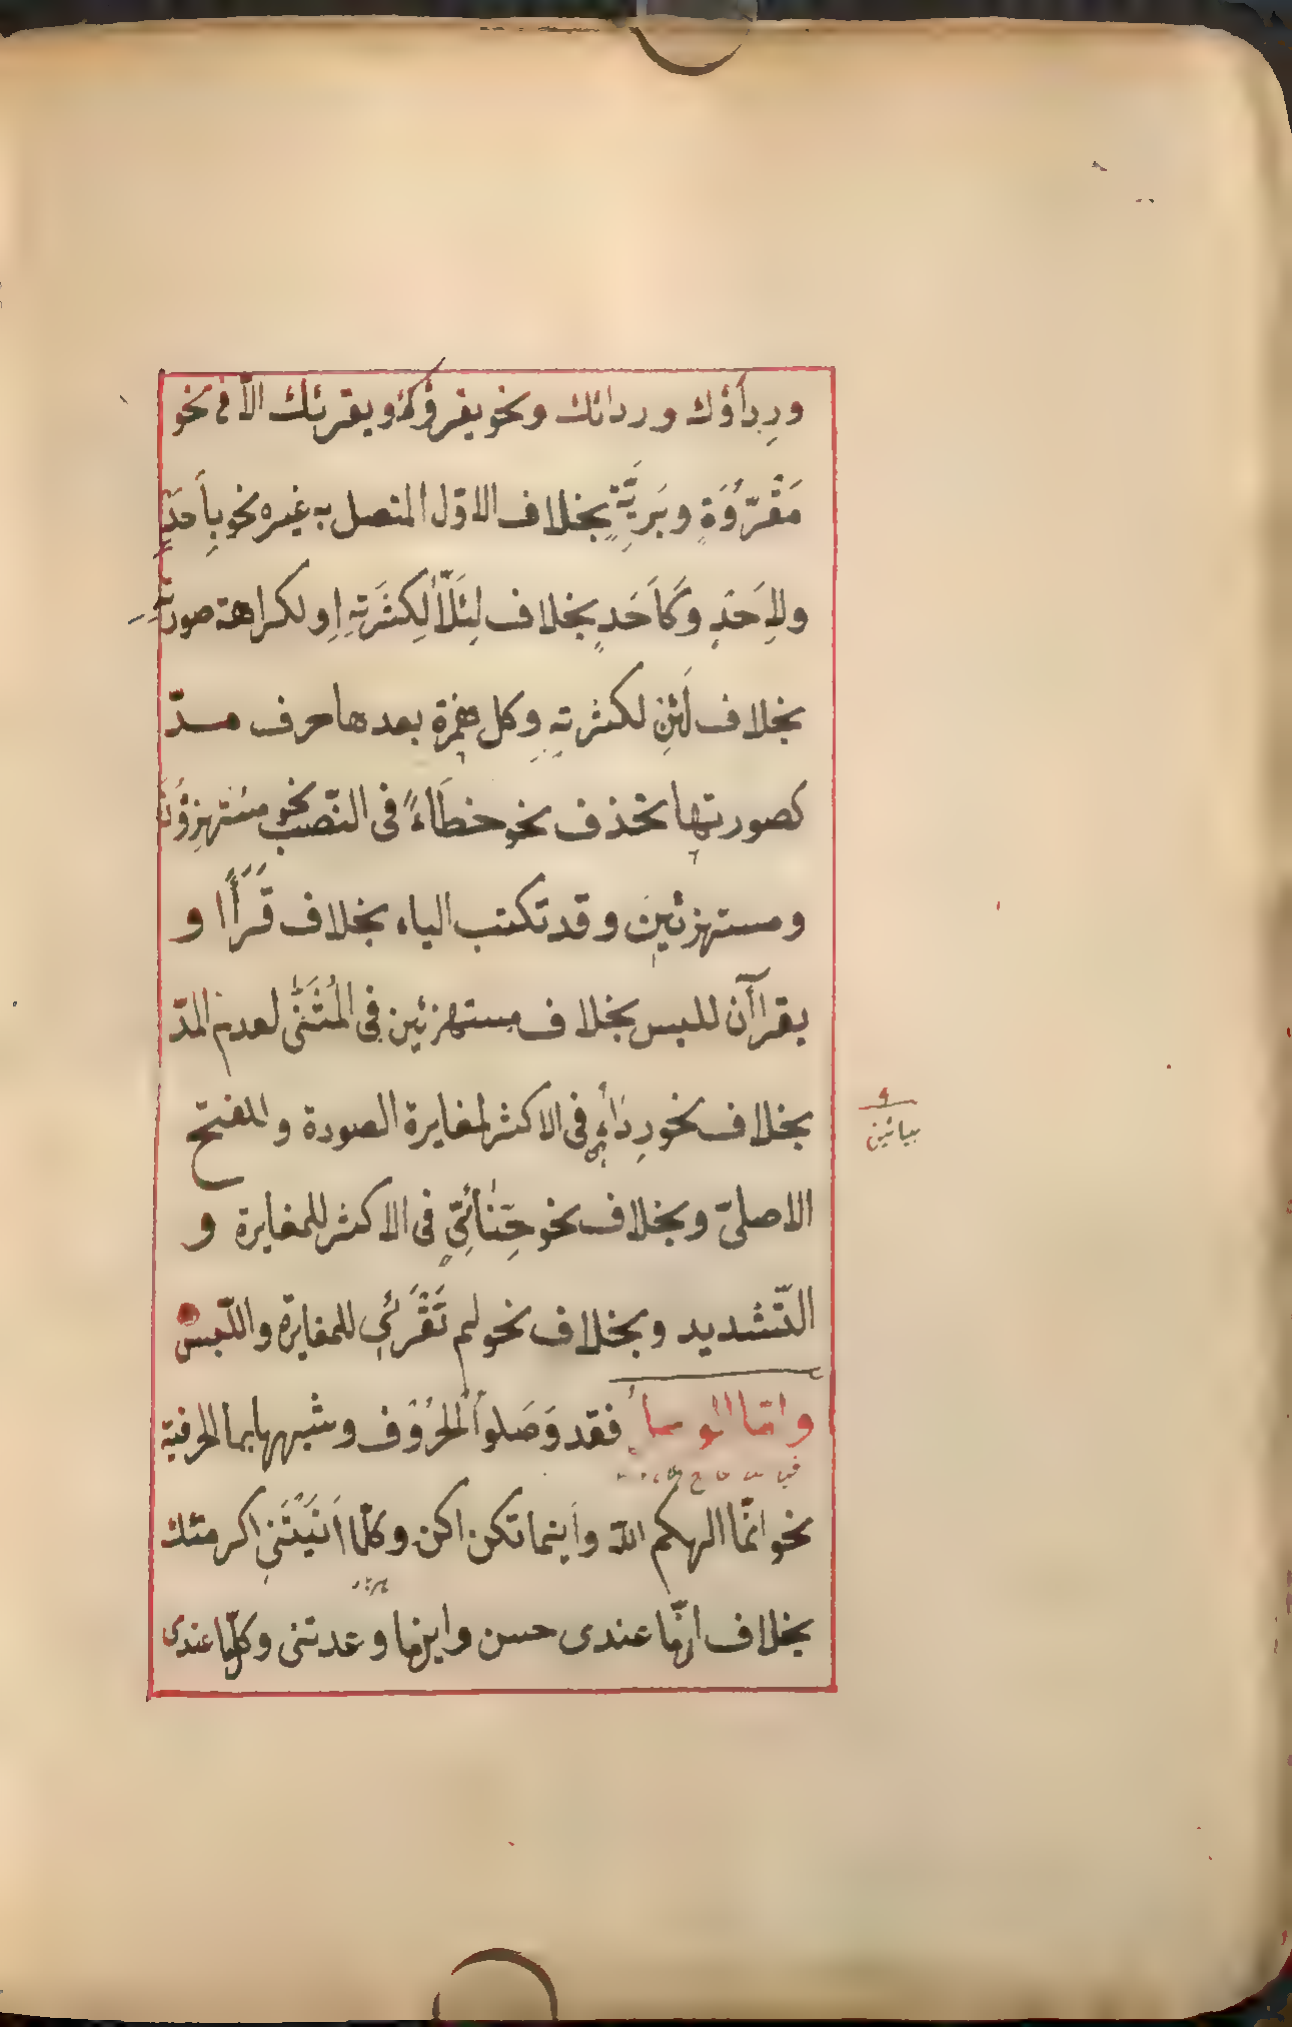 ورِدَاؤك وردائك ونحو يقرؤه ويقرئك الّا فى نحو
مَقْرُوَّةٍ وبَرِيَّةٍ بخلاف الاوّل المتصل به غيره نحو بِاَحَدٍ
ولِاَحَدٍ وكَاَحَدٍ بخلاف لِئَلَّا لِكَثْرَتِهِ او لكراهة صورته
بخلاف لَئِن لكثرته وكل همزة بعدها حرف مدّ
كصورتها تحذف نحو خطَاءً فى النّصب نحو مستهزؤنَ
ومستهزئين وقد تكتب الياء بخلاف قَرَأَا و
يقراآن للبس بخلاف مستهزئين فى المُثَنَّى لعدم المدّ
بخلاف نحو رِدَاءِى فى الاكثر لمغايرة الصورة والفتح
الاصلىّ وبخلاف نحو حِنَائِىٍّ فى الاكثر للمغايرة و
التّشديد وبخلاف نحو لم تَقْرَئِى للمغايرة واللّبس
وامّا الوصل فقد وَصَلوا الحُرُوف وشبهها بما الحرفية
نحو انّما الهكم اللّه واينما تكن اكن وكلّما اَتَيْتَنِى اكرمتك
بخلاف انّ ما عندى حسن واين ما وعدتنى وكلّ ما عندى
بيائين